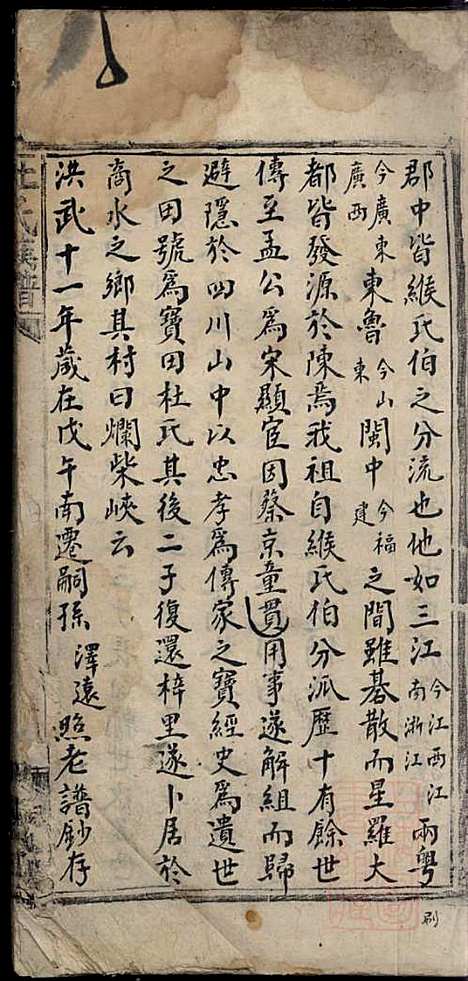 郡中皆緱氏伯之分流也他如三江今江西江南浙江兩粤
今廣東廣西東魯今山東閩中今福建之間雖碁散而星羅大
都皆發源於陳焉我祖自緱氏伯分派歷十有餘世
傳至孟公為宋顯宦因蔡京童貫用事遂解組而歸
避隱於四川山中以忠孝為傳家之寶經史為遺世
之田號為寶田杜氏其後二子復還梓里遂卜居於
商水之鄉其村曰爛柴峽云
洪武十一年歲在戊午南遷嗣孫 澤遠照老譜鈔存
杜氏族譜
刷